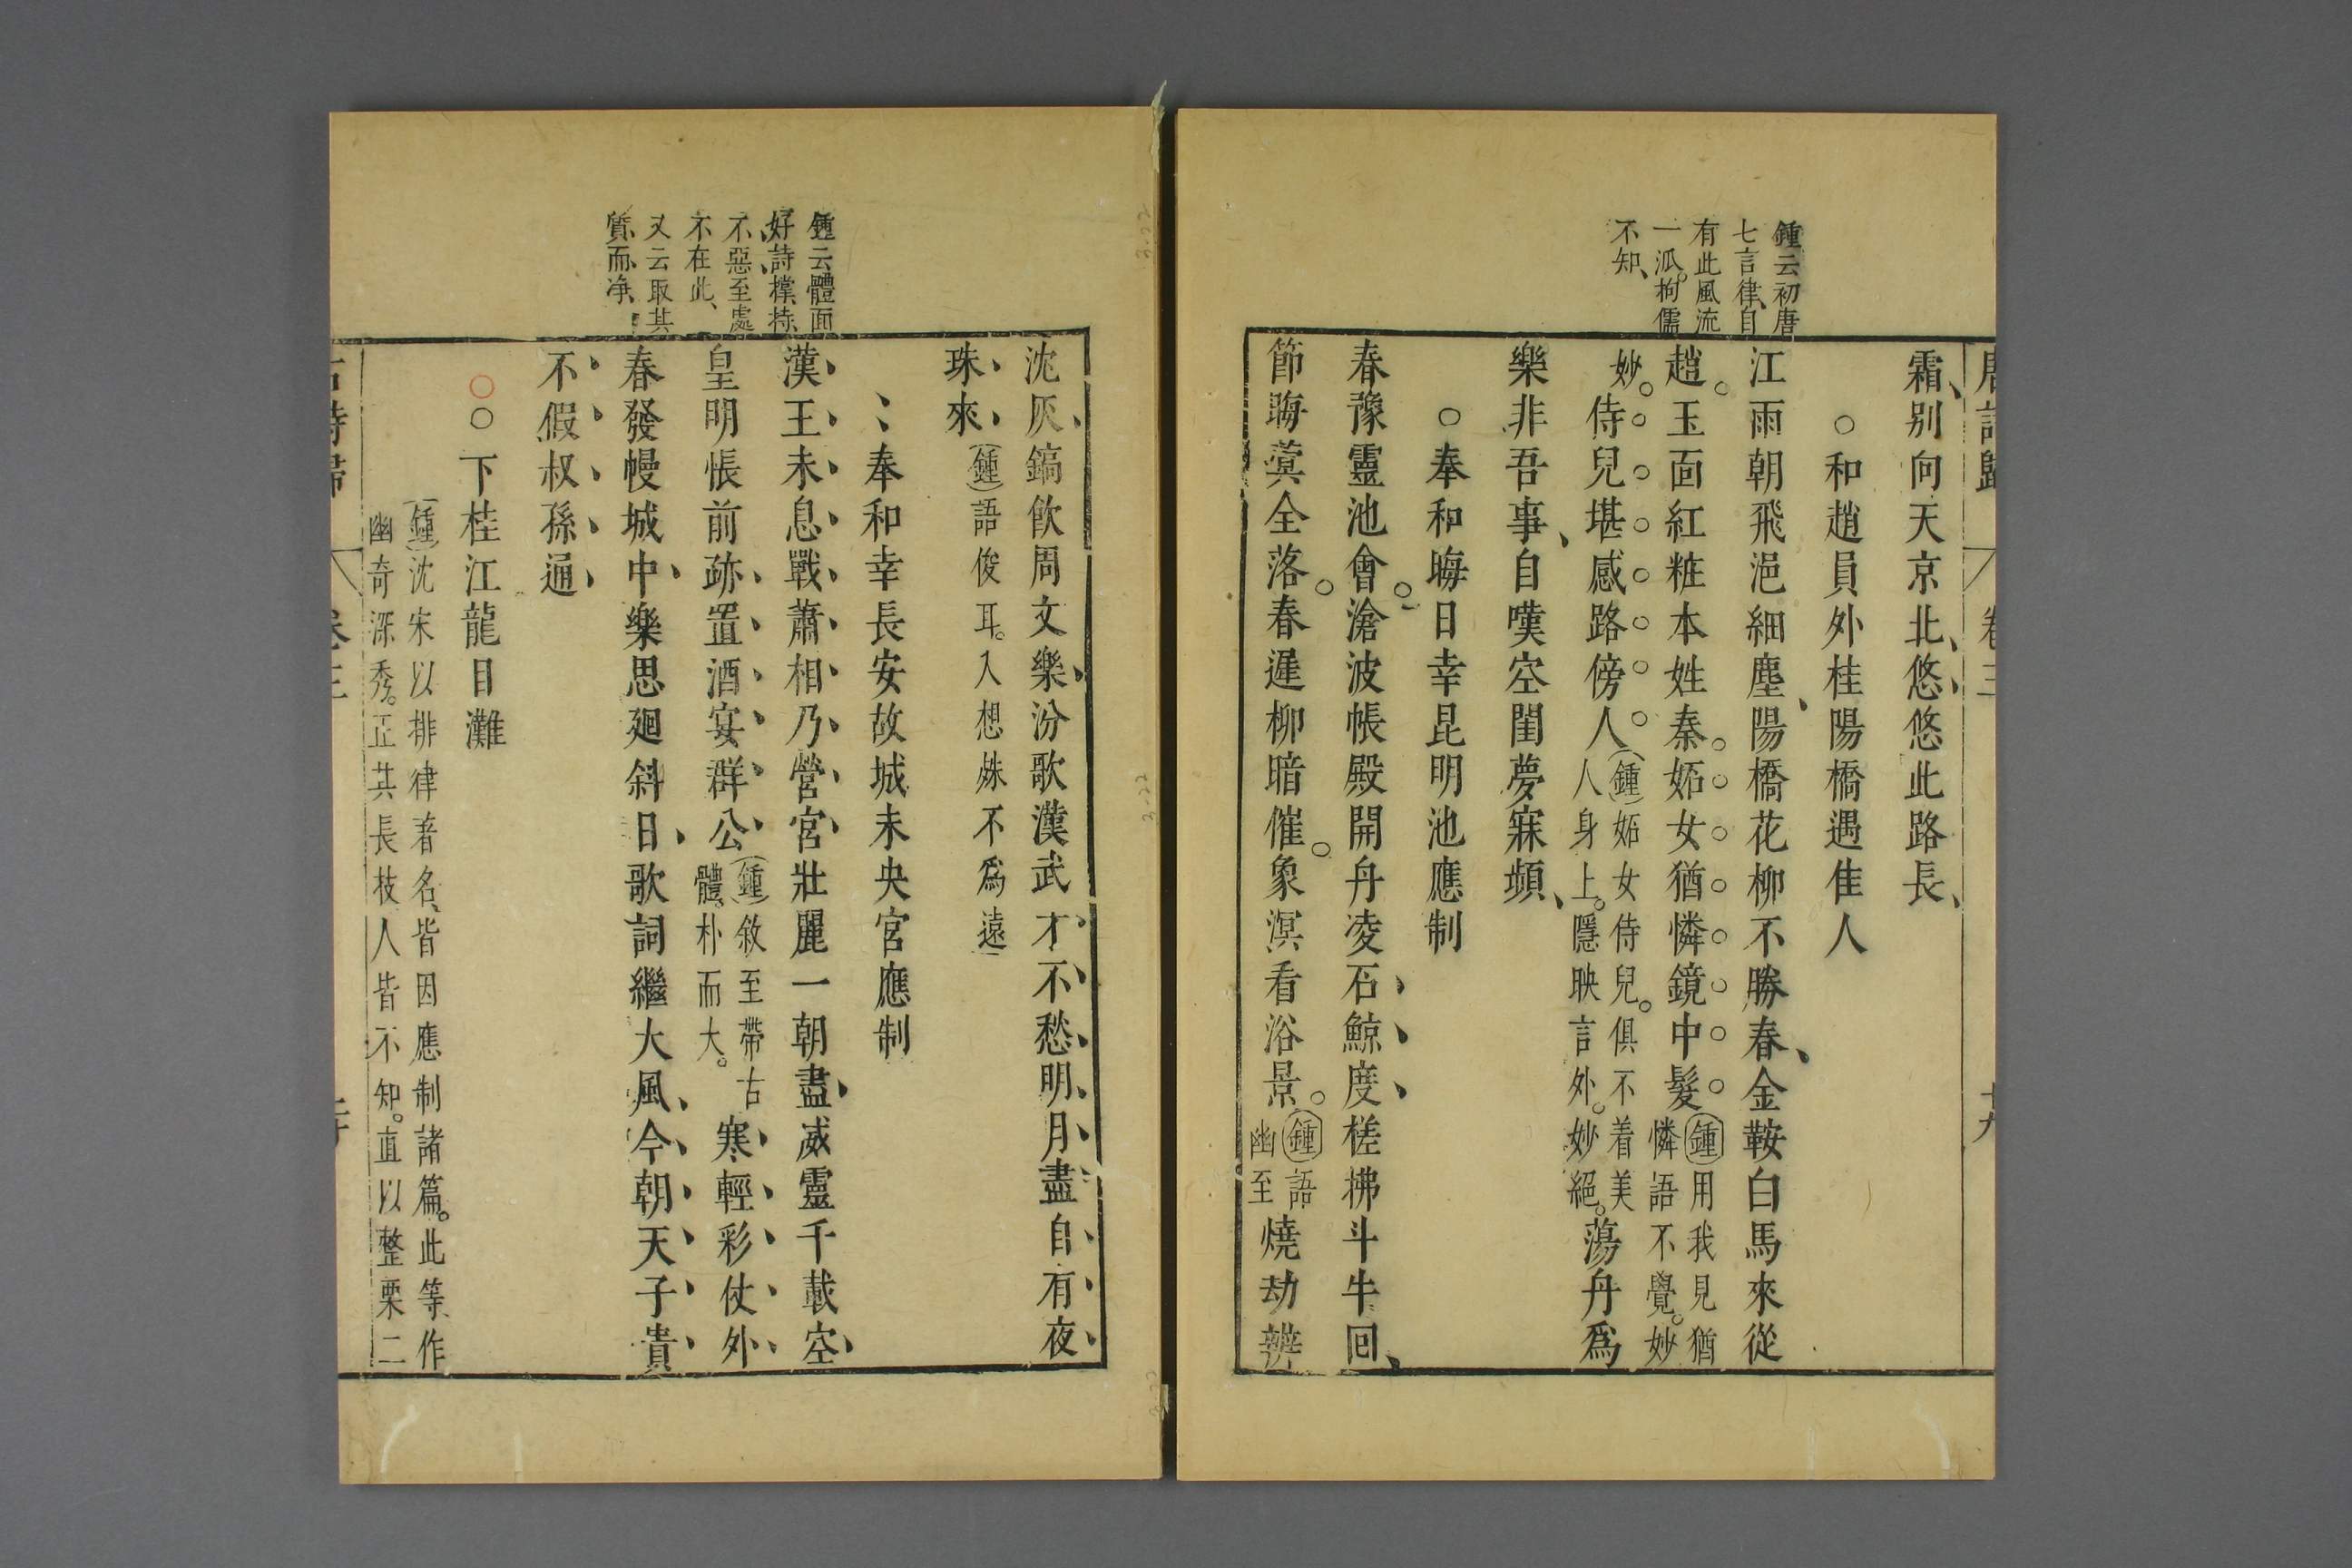 唐詩歸 卷三 十九
鍾云初唐
七言律自
有此風流
一派拘儒
不知
霜別向天京北悠悠此路長
○和趙員外桂陽橋遇佳人
江雨朝飛浥細塵陽橋花柳不勝春金鞍白馬來從
趙玉面紅粧本姓秦妬女猶憐鏡中髮
鍾用我見猶
憐語不覺妙
妙侍兒堪感路傍人
鍾妬女侍兒俱不着美
人身上隱映言外妙絕
蕩舟爲
樂非吾事自嘆空閨夢寐頻
○奉和晦日幸昆明池應制
春豫靈池會滄波帳殿開舟凌石鯨度槎拂斗牛囘
節晦蓂全落春遲柳暗催象溟看浴景
鍾語
幽至
燒劫辨
鍾云體面
好詩樸拙
不惡至處
不在此
又云取其
質而净
沈灰鎬飲周文樂汾歌漢武才不愁明月盡自有夜
珠來
鍾語俊耳入想殊不爲遠
奉和幸長安故城未央宮應制
漢王未息戰蕭相乃營宮壯麗一朝盡威靈千載空
皇明悵前跡置酒宴群公
鍾敘至帶古
體朴而大
寒輕彩仗外
春發幔城中樂思廻斜日歌詞繼大風今朝天子貴
不假叔孫通
○○下桂江龍目灘
鍾沈宋以排律著名皆因應制諸篇此等作
幽奇深秀正其長枝人皆不知直以整栗二
古詩歸 卷三 二十